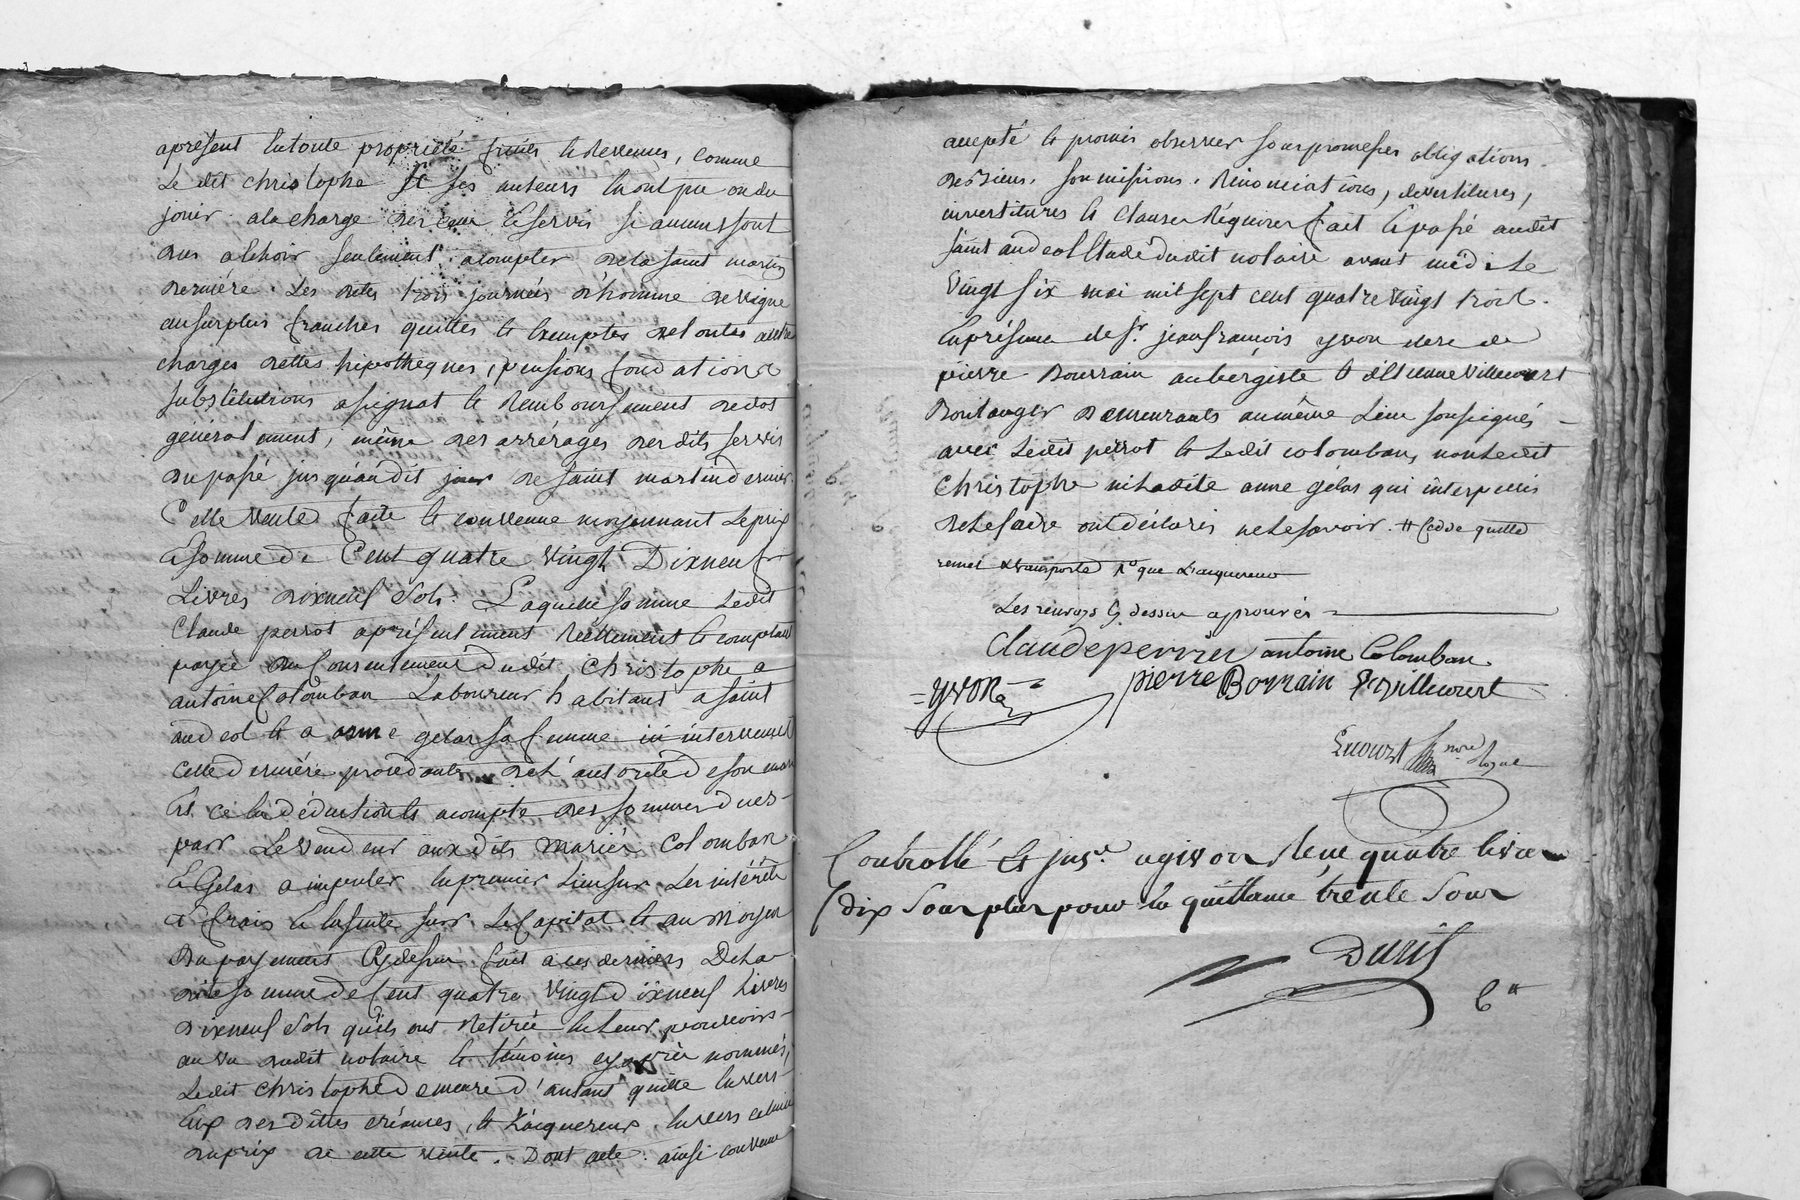 apresent en toute propriété fruits et Revenus, comme
Le dit christophe et ses auteurs en ont pu ou du
jouir. a la charge des cens et servis si aucuns sont
dus a echoir seulement acompter de la saint martin
derniére. Les dites trois journées d'homme de vigne
au surplus franches quittes et Exemptes de toutes autres
charges dettes hipotheques, pensions fondations
substitutions assignat et Remboursement de dot
généralement, même des arrérages des dits servis
du passé jusqu'audit jour de saint martin dernier
Cette vente faite et convenue moyennant le prix
et somme de Cent quatre vingt Dixneuf
Livres dixneuf sols. Laquelle somme Ledit
Claude perrot a présentement Réellement et comptant
payée du Consentement dudit Christophe a
antoine Colomban Laboureur habitant a saint
andeol et a anne gelas sa femme ici intervenus
cette derniére procédante de l'autorité de son mari
Et ce en déduction et acompte des sommes dues
par Le vendeur auxdits mariés Colomban
et Gelas a imputer en premier Lieu sur Les intérêts
et frais et ensuite sur Le Capital et au moyen
du payement cy dessus fait a ces derniers De la
dite somme de Cent quatre vingt dixneuf Livres
dixneuf sols qu'ils ont Retirée en leur pouvoir
au vu dudit notaire et témoins cy après nommés,
Ledit christophe demeure d'autant quitte envers
Eux des dittes créances, et L'acquereur envers celui
du prix de cette vente. Dont acte. ainsi convenu
accepté et promis observer sous promesses obligations
de biens, soumissions, Rénonciations, devestitures,
investitures et clauses Réquises fait et passé audit
saint andeol Etude dudit notaire avant midi Le
vingt six mai mil sept cent quatre vingt trois.
En présence de sr. jean françois yvon
pierre Bourrain aubergiste et Etienne Villecourt
Boulanger demeurants au même Lieu soussignés
avec Ledit perrot et Ledit colomban, non Ledit
Christophe ni Ladite anne gélas qui interpellés
de Le faire ont déclarés ne Le savoir. # cede quitte
remet et transporte que L'acquereur
Les renvois cy dessus aprouvés
Claude perrier antoine Colomban
= yvon = pierre Borrain E villecourt
nore
Controllé et jnsé. a givors Reçu quatre livres
dix sous plus pour la quittance trente sous
Duril
6 tt